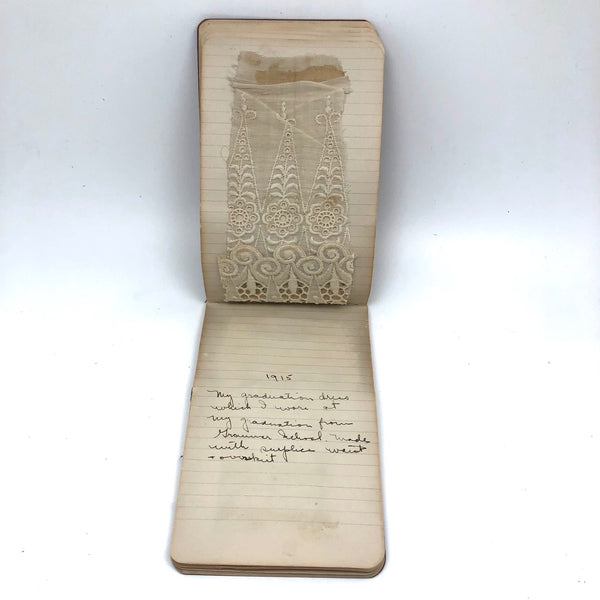 1915
My graduation dress
which I wore at
my graduation from
Grammar School made
with surplice waist
+ overskirt